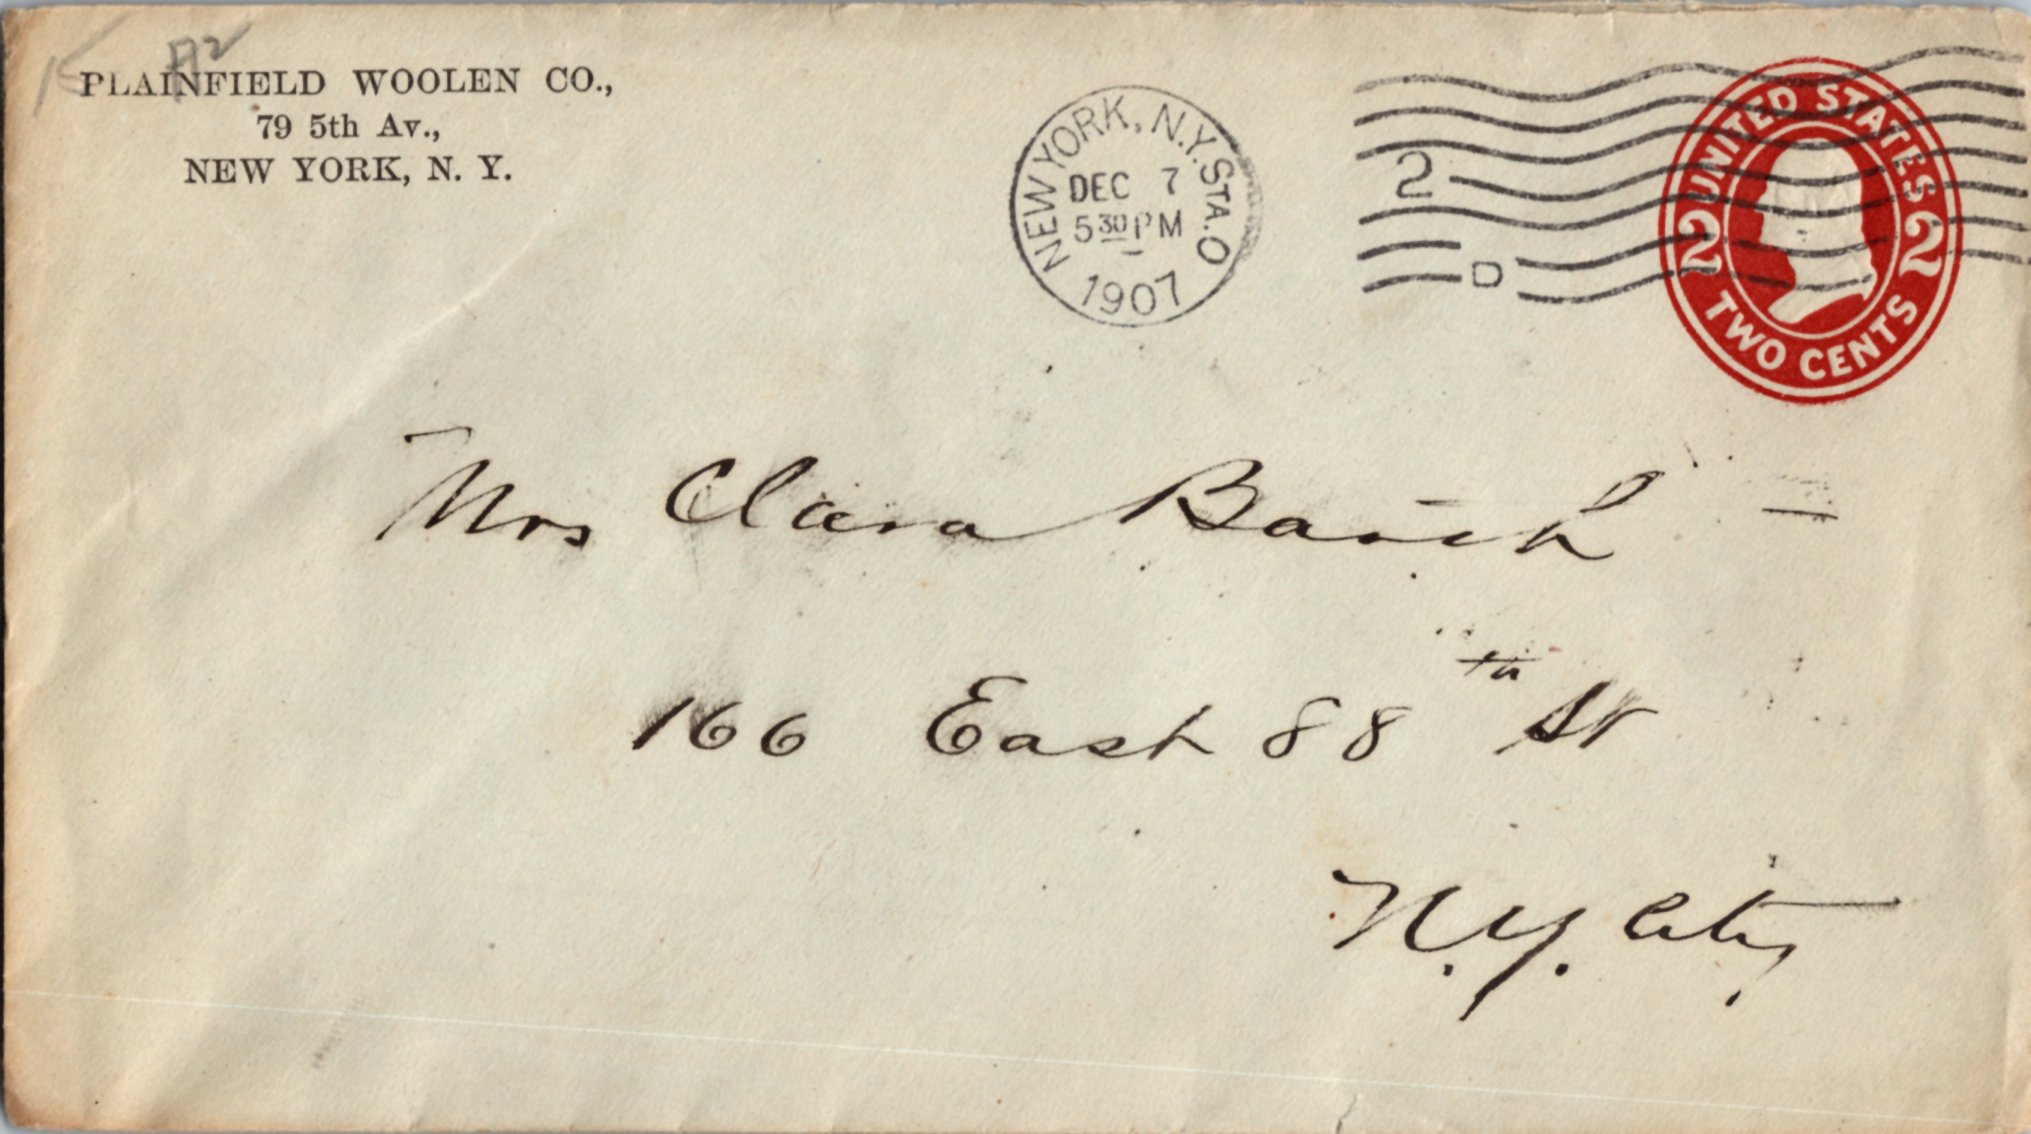 A2
PLAINFIELD WOOLEN CO.,
79 5th Av.,
NEW YORK, N. Y.
NEW YORK, N.Y. STA. O
DEC 7
5 30 PM
1907
2
D
UNITED STATES
2 2
TWO CENTS
Mrs Clara
166 East 88th St
N.Y. City